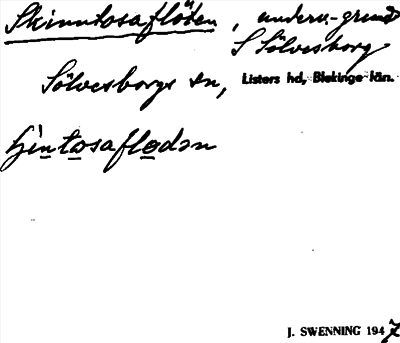 Skinntosafloden, underv.-grund
S Sölvesborg
Sölvesborgs sn, Listers hd, Blekinge län.
sintosafloden
J. SWENNING 1947